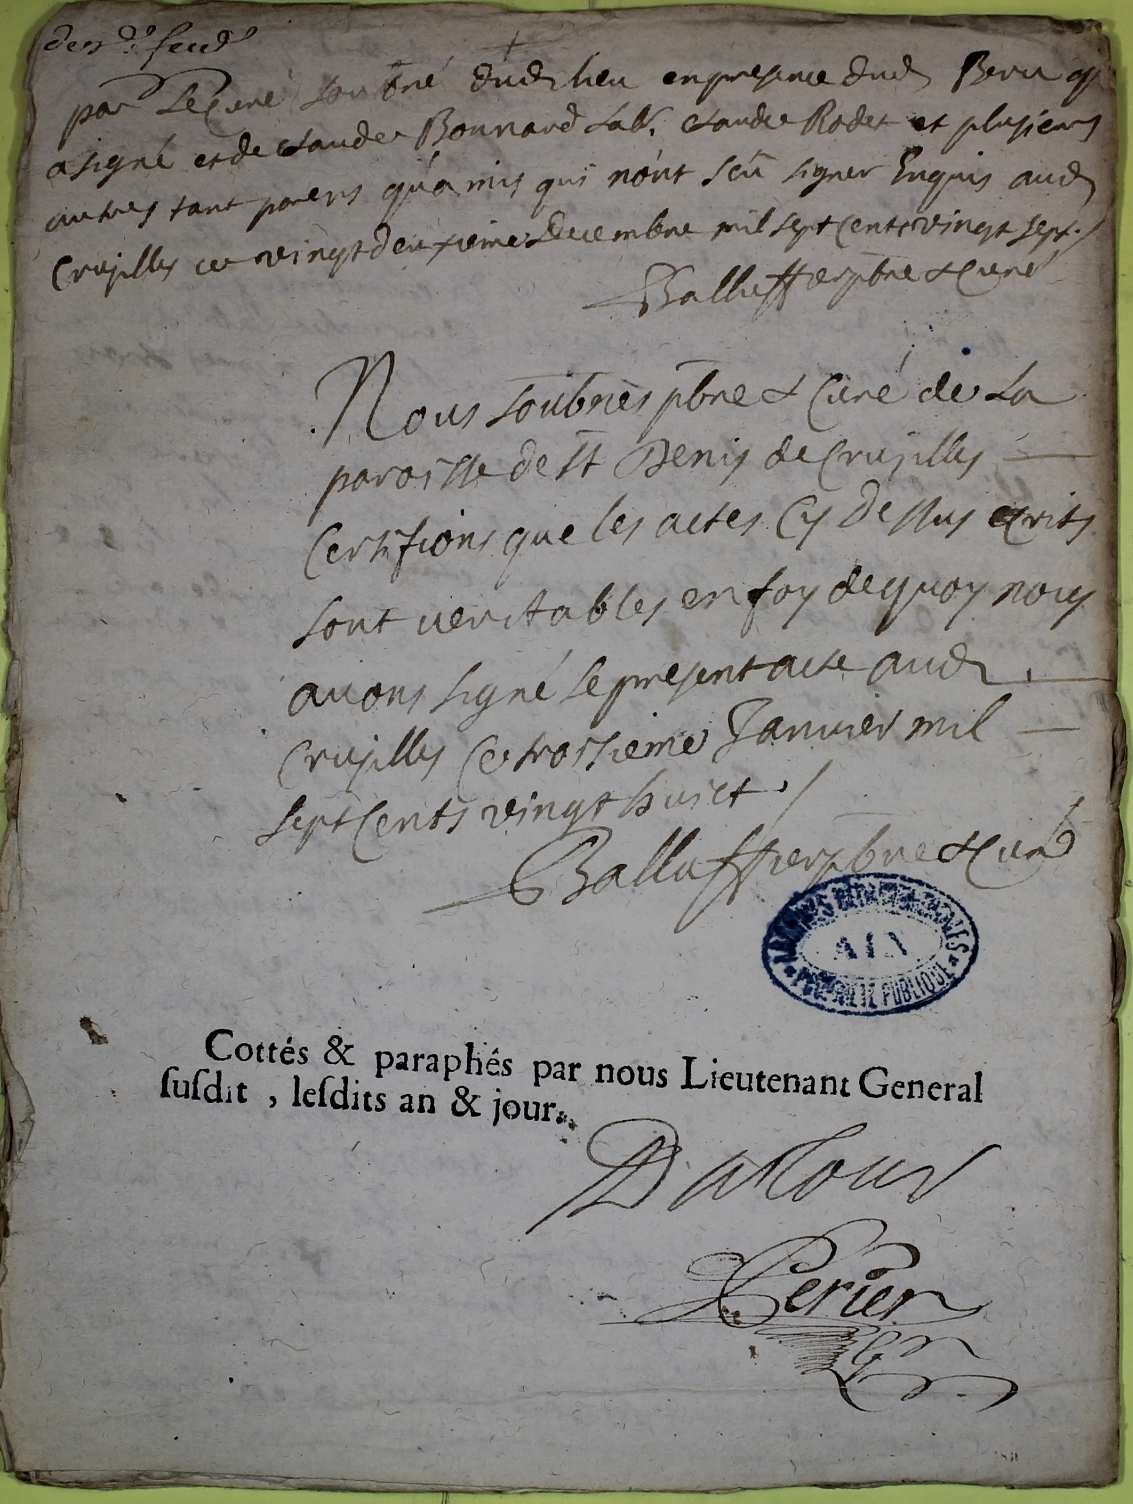 par le Curé soubné dud lieu en presence dud Beru q
a signé et de claude Bonnard lab. claude Rodet et plusieurs
autres tant parens qu'amis qui n'ont sçu signer Enquis aud
Crusilles ce vingt deuxieme Decembre mil sept Cents vingt sept ./
Balluffier pbre & Curé
Nous soubnés pbre & Curé de La
paroisse de st Denis de Crusilles
Certifions que les actes Cy dessus ecrits
sont veritables en foy de quoy nous
avons signé le present acte aud
Crusilles Ce troisieme Janvier mil
sept Cents vingt huict ./
Balluffier pbre & Curé
ARCHIVES DEPARTEMENTALES
AIN
PROPRIETE PUBLIQUE
Cottés & paraphés par nous Lieutenant General
ſuſdit , leſdits an & jour.
Perier